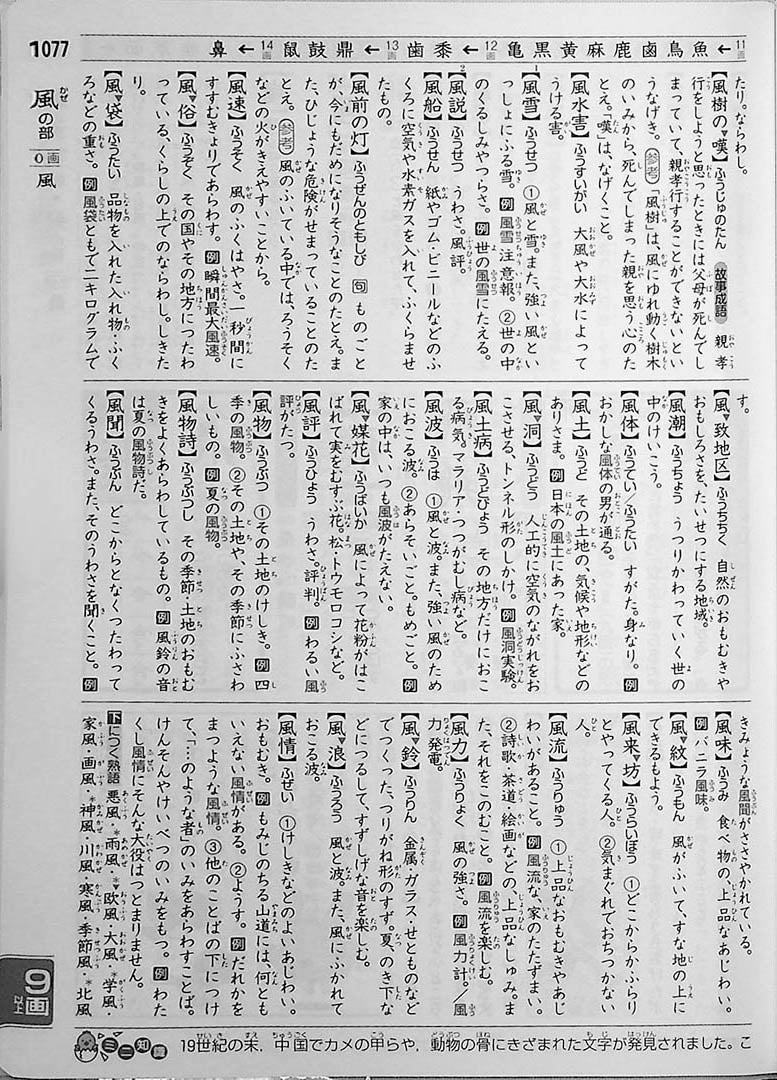 1077
鼻←14画 鼠鼓鼎←13画 歯黍←12画 亀黒黄麻鹿鹵鳥魚←11画
風の部 0画 風
たり。ならわし。
【風樹の▼嘆】ふうじゅのたん 故事成語 親孝
行をしようと思ったときには父母が死んでし
まっていて、親孝行することができないとい
うなげき。参考「風樹」は、風にゆれ動く樹木
のいみから、死んでしまった親を思う心のた
とえ。「嘆」は、なげくこと。
【風水害】ふうすいがい 大風や大水によって
うける害。
【風雪】ふうせつ ①風と雪。また、強い風とい
っしょにふる雪。例風雪注意報。②世の中
のくるしみやつらさ。例世の風雪にたえる。
【風説】ふうせつ うわさ。風評。
【風船】ふうせん 紙やゴム・ビニールなどのふ
くろに空気や水素ガスを入れて、ふくらませ
たもの。
【風前の灯】ふうぜんのともしび 句 ものごと
が、今にもだめになりそうなことのたとえ。ま
た、ひじょうな危険がせまっていることのた
とえ。参考風のふいている中では、ろうそく
などの火がきえやすいことから。
【風速】ふうそく 風のふくはやさ。一秒間に
すすむきょりであらわす。例瞬間最大風速。
【風▼俗】ふうぞく その国やその地方につたわ
っている、くらしの上でのならわし。しきた
り。
【風▼袋】ふうたい 品物を入れた入れ物・ふく
ろなどの重さ。例風袋ともで二キログラムで
す。
【風▼致地区】ふうちちく 自然のおもむきや
おもしろさを、たいせつにする地域。
【風潮】ふうちょう うつりかわっていく世の
中のけいこう。
【風体】ふうてい/ふうたい すがた。身なり。例
おかしな風体の男が通る。
【風土】ふうど その土地の、気候や地形などの
ありさま。例日本の風土にあった家。
【風▼洞】ふうどう 人工的に空気のながれをお
こさせる、トンネル形のしかけ。例風洞実験。
【風土病】ふうどびょう その地方だけにおこ
る病気。マラリア・つつがむし病など。
【風波】ふうは ①風と波。また、強い風のため
におこる波。②あらそいごと。もめごと。例
家の中は、いつも風波がたえない。
【風▼媒花】ふうばいか 風によって花粉がはこ
ばれて実をむすぶ花。松・トウモロコシなど。
【風評】ふうひょう うわさ。評判。例わるい風
評がたつ。
【風物】ふうぶつ ①その土地のけしき。例四
季の風物。②その土地や、その季節にふさわ
しいもの。例夏の風物。
【風物詩】ふうぶつし その季節・土地のおもむ
きをよくあらわしているもの。例風鈴の音
は夏の風物詩だ。
【風聞】ふうぶん どこからとなくつたわって
くるうわさ。また、そのうわさを聞くこと。例
きみょうな風聞がささやかれている。
【風味】ふうみ 食べ物の、上品なあじわい。
例バニラ風味。
【風▼紋】ふうもん 風がふいて、すな地の上に
できるもよう。
【風来▼坊】ふうらいぼう ①どこからかふらり
とやってくる人。②気まぐれでおちつかない
人。
【風流】ふうりゅう ①上品なおもむきやあじ
わいがあること。例風流な、家のたたずまい。
②詩歌・茶道・絵画などの、上品なしゅみ。ま
た、それをこのむこと。例風流を楽しむ。
【風力】ふうりょく 風の強さ。例風力計。/風
力発電。
【風▼鈴】ふうりん 金属・ガラス・せとものなど
でつくった、つりがね形のすず。夏、のき下な
どにつるして、すずしげな音を楽しむ。
【風▼浪】ふうろう 風と波。また、風にふかれて
おこる波。
【風情】ふぜい ①けしきなどのよいあじわい。
おもむき。例もみじのちる山道には、何とも
いえない風情がある。②ようす。例だれかを
まつような風情。③他のことばの下につけ
て、「…のような者」のいみをあらわすことば。
けんそんやけいべつのいみをもつ。例わた
くし風情にそんな大役はつとまりません。
下につく熟語 悪風・*雨風・*▼欧風・大風・*学風・
家風・画風・*神風・川風・寒風・季節風・*北風
9画以上
ミニ知識 19世紀の末、中国でカメの甲らや、動物の骨にきざまれた文字が発見されました。こ